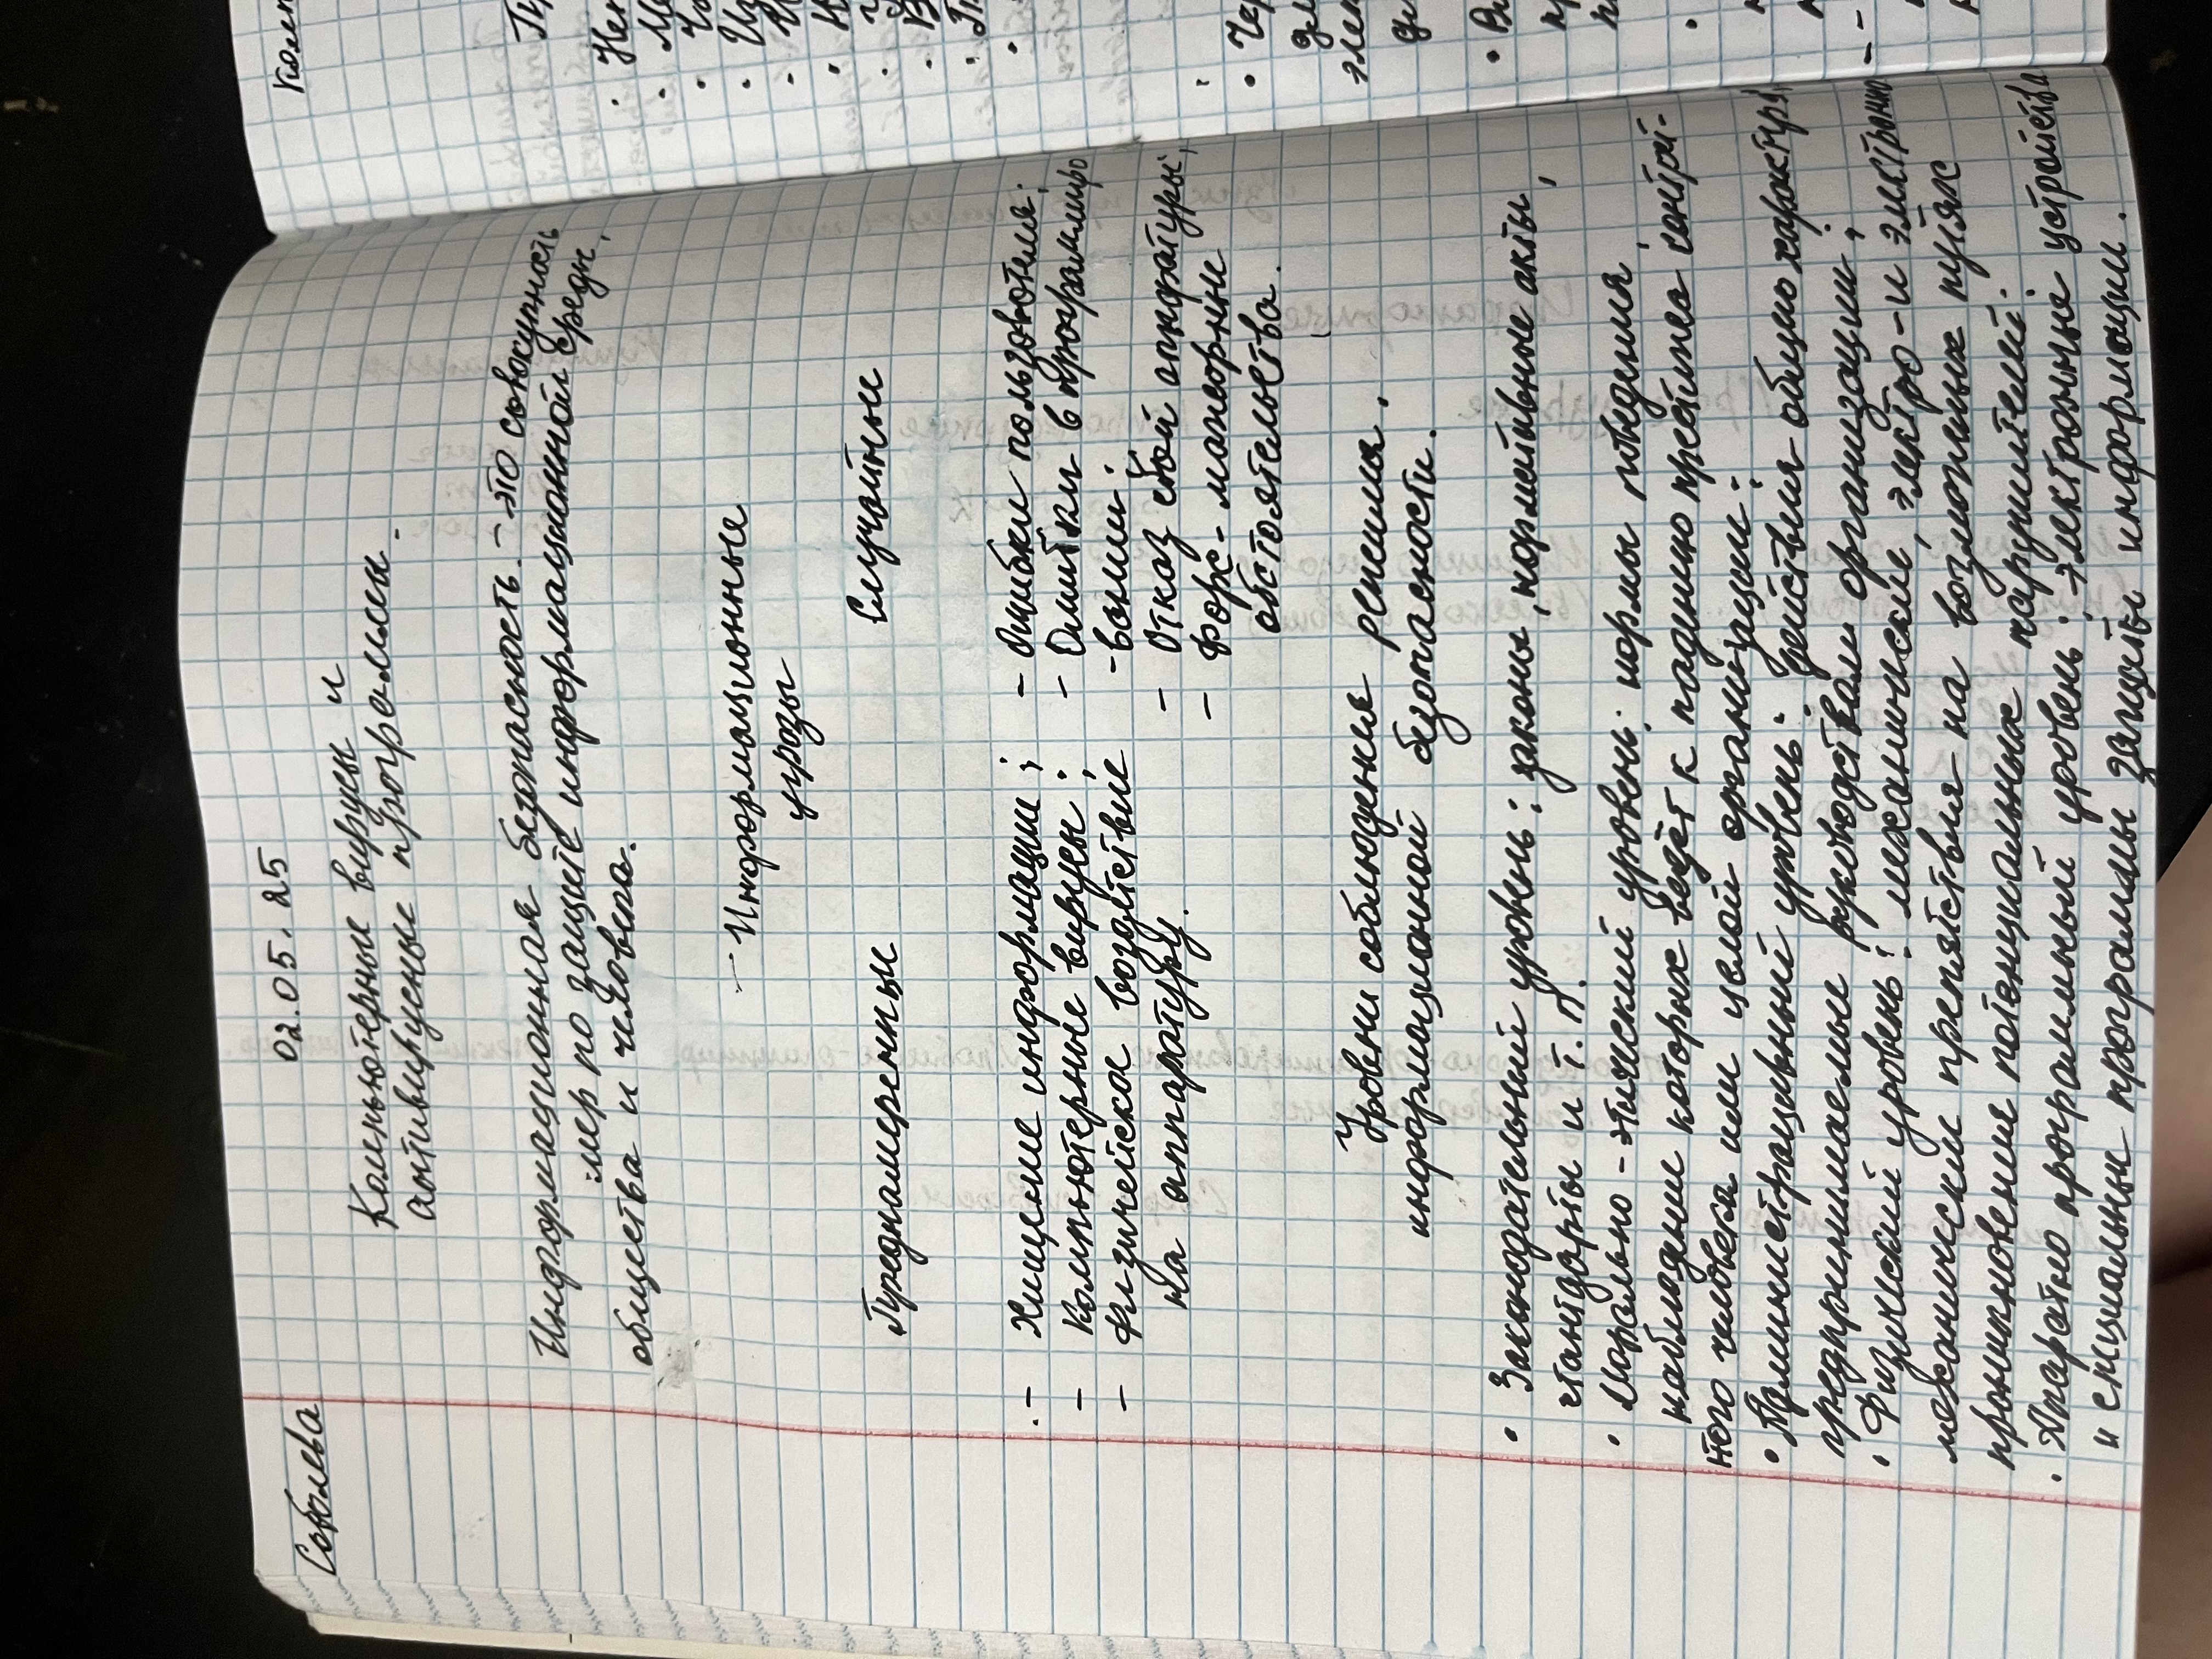 Соболева
02.05.25
Компьютерные вирусы и
антивирусные программы.
Информационная безопасность - это совокупность
мер по защите информационной среды,
общества и человека.
Информационные
угрозы
Преднамеренные Случайные
- Хищение информации; - Ошибки пользователя;
- Компютерные вирусы; - Ошибки в программиро
- Физическое воздействие - вании;
на аппаратуру. - Отказ сбой аппаратуры;
- Форс-мажорные
обстоятельства.
Уровни соблюдения режима
информационной безопасности.
• Законодательный уровень: законы, нормативные акты,
стандарты и т.п.
• Морально-этический уровень: нормы поведения,
наблюдение которых ведёт к падению престижа конкрет-
ного человека или целой организации;
• Административный уровень: действия общего характера
предпринимаемые руководством организации;
• Физический уровень: механические, электро-и электронно
механические препятствия на возможных путях
проникновения потенциальных нарушителей.
• Аппаратно программный уровень: электронные устройства
и специальные программы защиты информации.